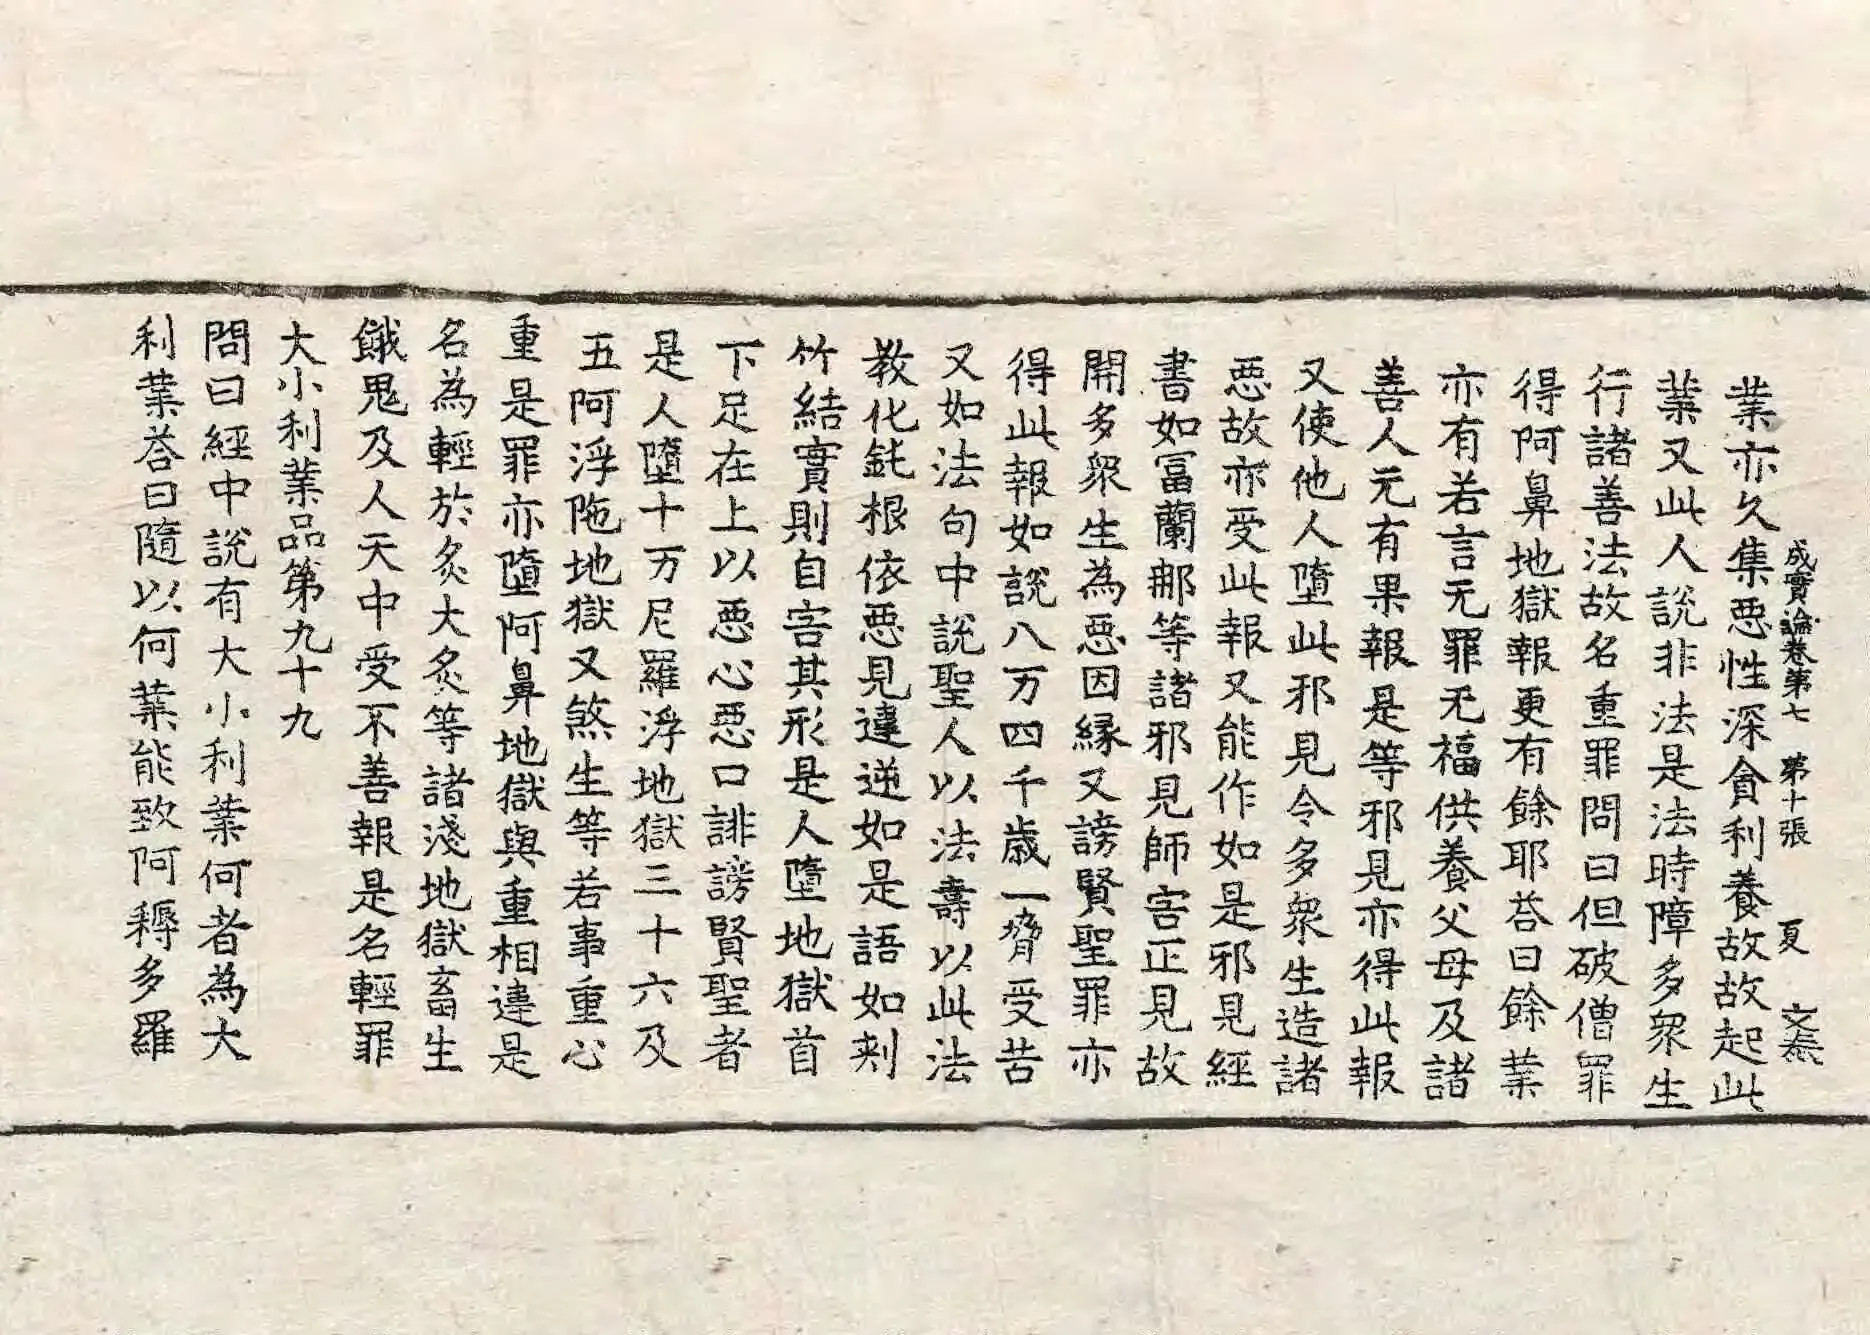 成實論卷第七 第十張 夏 文泰
業亦久集惡性深貪利養故故起此
業又此人說非法是法時障多衆生
行諸善法故名重罪問曰但破僧罪
得阿鼻地獄報更有餘耶荅曰餘業
亦有若言无罪无福供養父母及諸
善人无有果報是等邪見亦得此報
又使他人墮此邪見令多衆生造諸
惡故亦受此報又能作如是邪見經
書如冨蘭那等諸邪見師害正見故
開多衆生為惡因緣又謗賢聖罪亦
得此報如說八万四千歲一脅受苦
又如法句中說聖人以法壽以此法
教化鈍根依惡見違逆如是語如刺
竹結實則自害其形是人墮地獄首
下足在上以惡心惡口誹謗賢聖者
是人墮十万尼羅浮地獄三十六及
五阿浮陁地獄又煞生等若事重心
重是罪亦墮阿鼻地獄與重相違是
名為輕於炙大炙等諸淺地獄畜生
餓鬼及人天中受不善報是名輕罪
大小利業品第九十九
問曰經中說有大小利業何者為大
利業荅曰隨以何業能致阿耨多羅